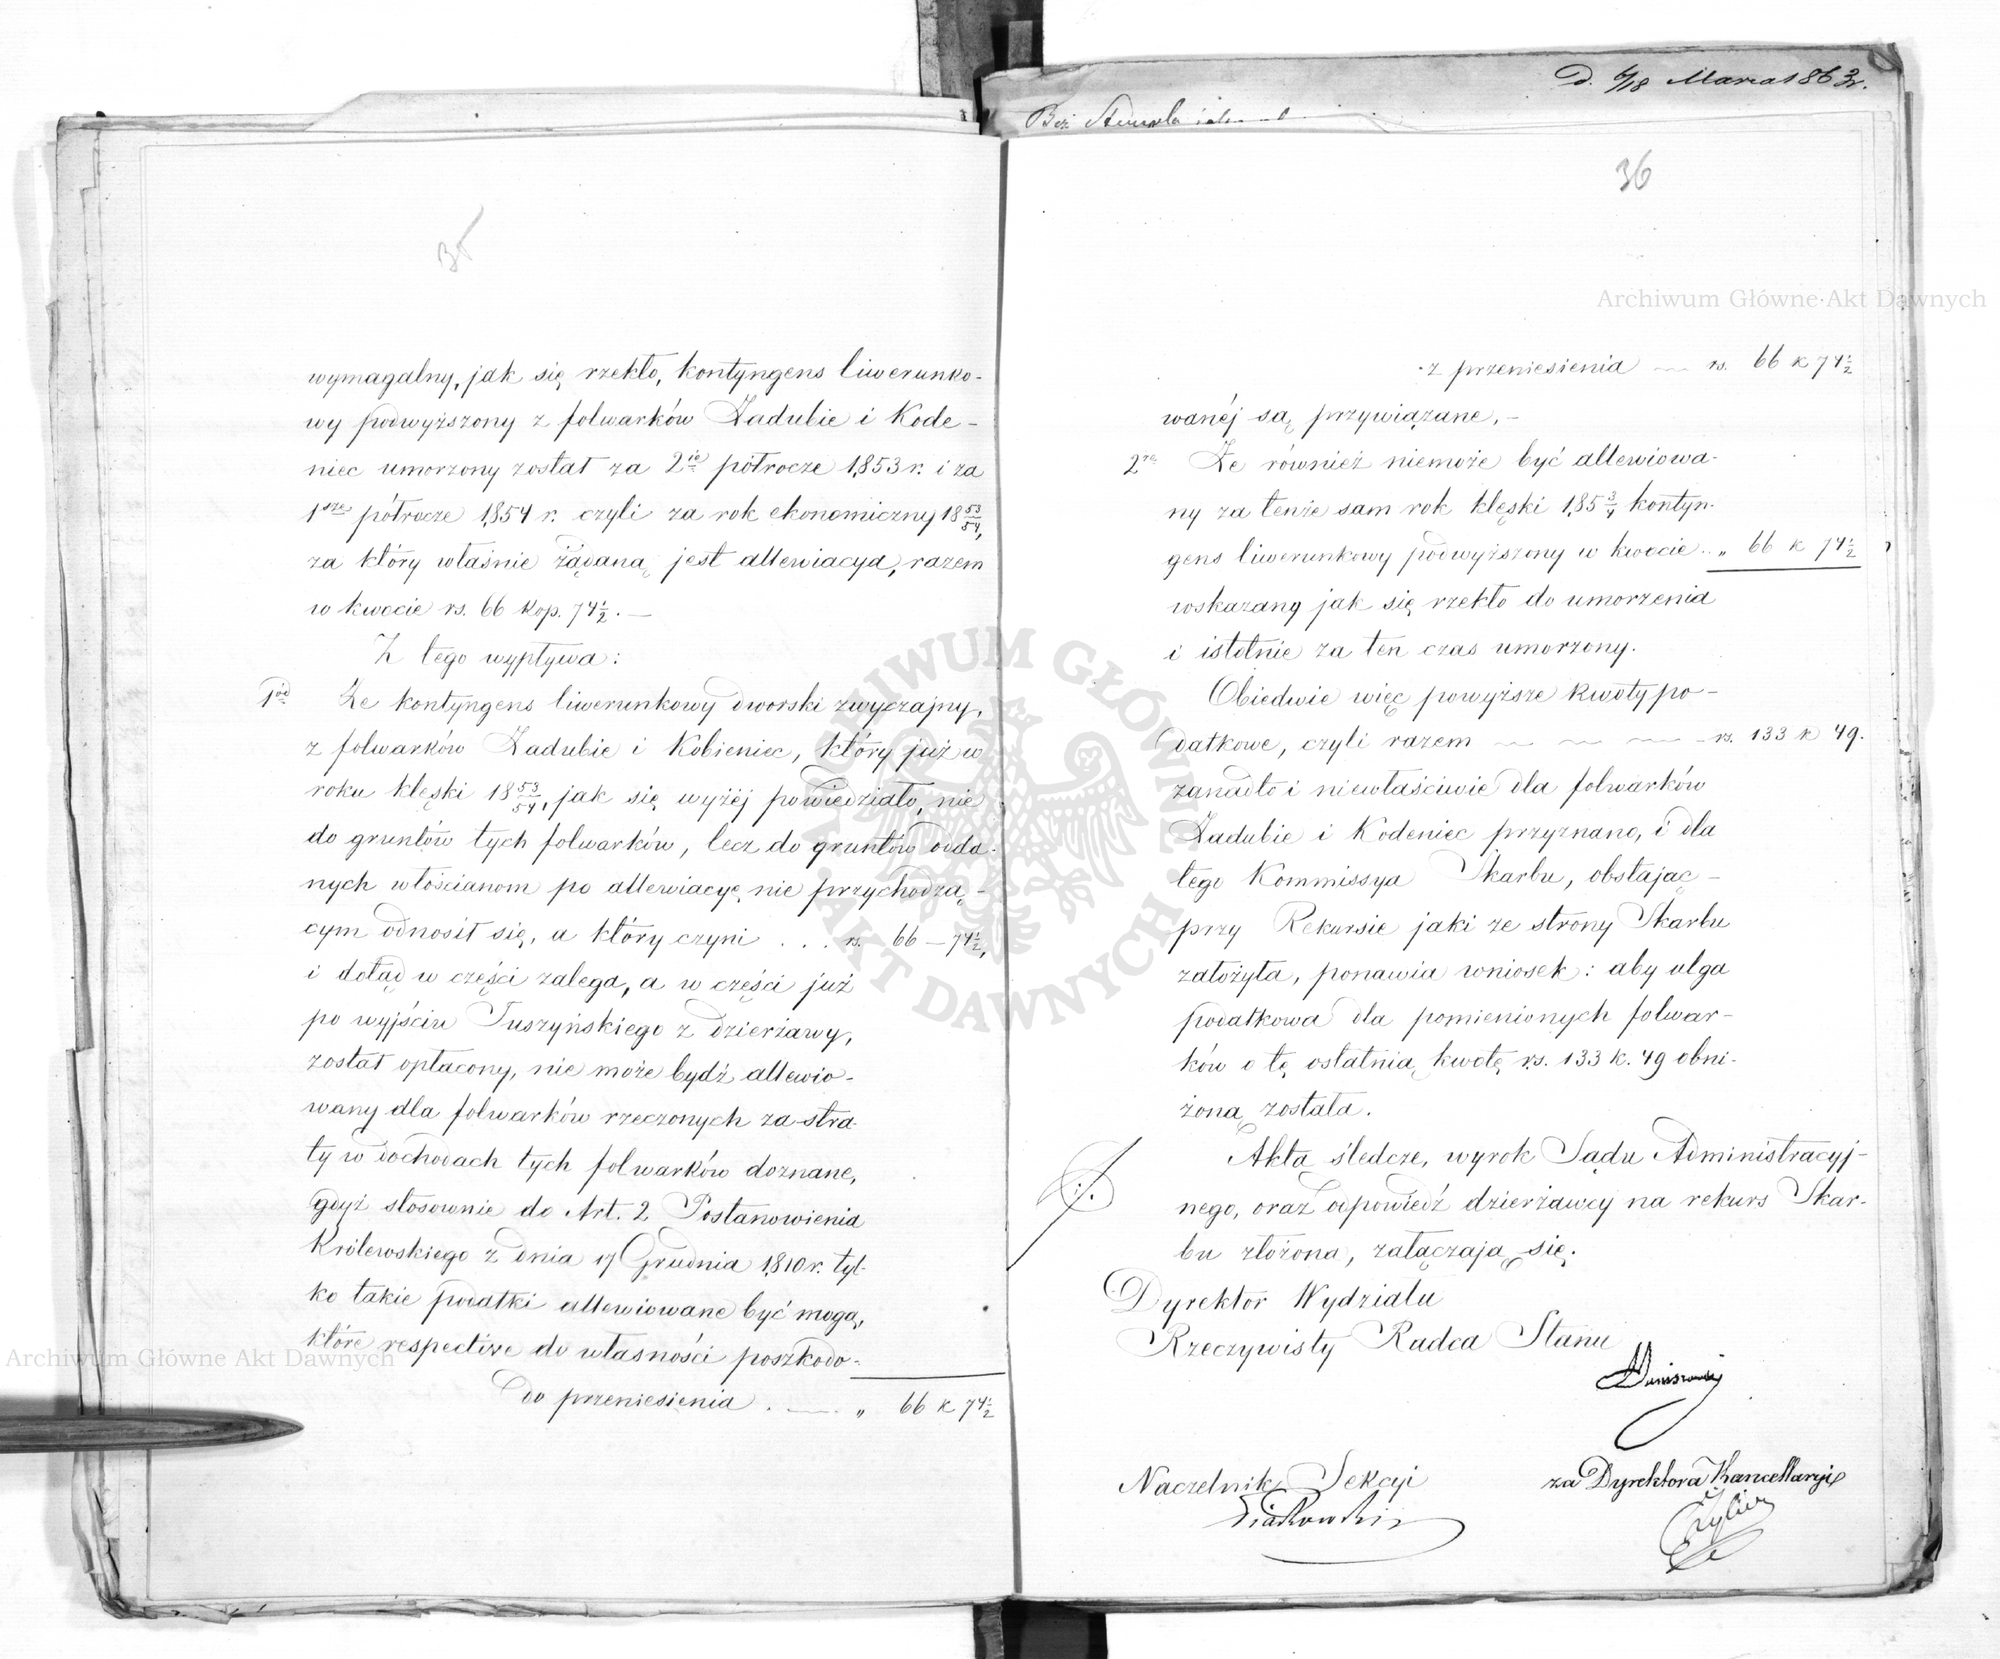 35
wymagalny, jak się rzekło, kontyngens liwerunko-
wy podwyższony z folwarków Zadubie i Kode-
niec umorzony został za 2ie półrocze 1853 r. i za
1sze półrocze 1854 r. czyli za rok ekonomiczny 1853/54,
za który właśnie żądaną jest allewiacya, razem
w kwocie rs. 66 kop. 74½. —
Z tego wypływa:
1ód Że kontyngens liwerunkowy dworski zwyczajny,
z folwarków Zadubie i Kobieniec, który już w
roku klęski 1853/54, jak się wyżéj powiedziało, nie
do gruntów tych folwarków, lecz do gruntów odda-
nych włościanom po allewiacyę nie przychodzą-
cym odnosił się, a który czyni . . . rs. 66 — 74½,
i dotąd w części zalega, a w części już
po wyjściu Tuszyńskiego z dzierżawy,
został opłacony, nie może bydź allewio-
wany dla folwarków rzeczonych za stra-
ty w dochodach tych folwarków doznane,
gdyż stosownie do Art. 2 Postanowienia
Królewskiego z dnia 17 Grudnia 1810 r. tyl-
ko takie podatki allewiowane być mogą,
które respective do własności poszkodo-
do przeniesienia . — „ 66 k 74½
D. 6/18 Marca 1863 r.
Bez Stempla
36
z przeniesienia — rs. 66 k 74½
wanéj są przywiązane, —
2re Że również niemoże być allewiowa-
ny za tenże sam rok klęski 1853/4 kontyn-
gens liwerunkowy podwyższony w kwocie . „ 66 k 74½
wskazany jak się rzekło do umorzenia
i istotnie za ten czas umorzony.
Obiedwie więc powyższe kwoty po-
datkowe, czyli razem — — — rs. 133 k 49.
zanadto i niewłaściwie dla folwarków
Zadubie i Kodeniec przyznano, i dla
tego Kommissya Skarbu, obstając
przy Rekursie jaki ze strony Skarbu
założyła, ponawia wniosek: aby ulga
podatkowa dla pomienionych folwar-
ków o tę ostatnią kwotę rs. 133 k. 49 obni-
żoną została.
Akta śledcze, wyrok Sądu Administracyj-
nego, oraz odpowiedź dzierżawcy na rekurs Skar-
bu złożona, załączają się.
Dyrektor Wydziału
Rzeczywisty Radca Stanu
Naczelnik Sekcyi
Piątkowski
za Dyrektora Kancellaryi
Archiwum Główne Akt Dawnych
Archiwum Główne Akt Dawnych
ARCHIWUM GŁÓWNE AKT DAWNYCH